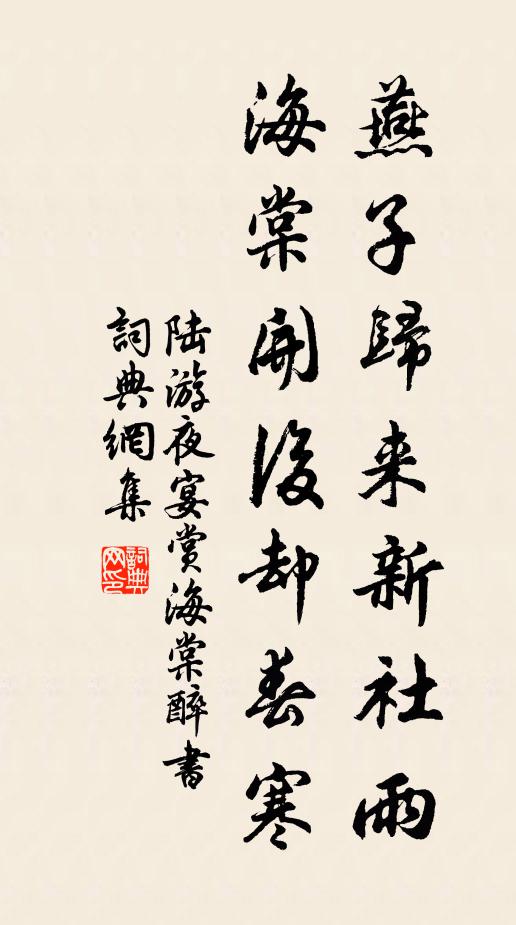 燕子歸来新社雨
海棠開後却春寒
陆游夜宴赏海棠醉書
詞典網集
詞典网印